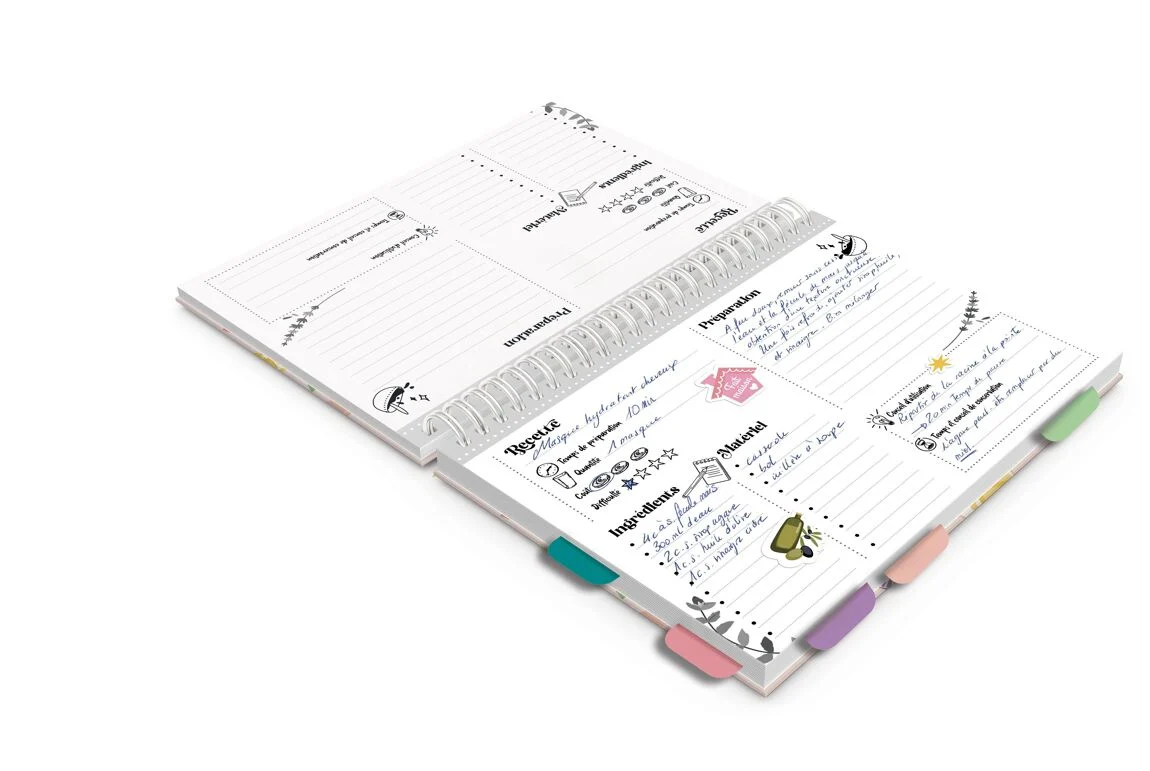 Recette
Masque hydratant cheveux
Temps de préparation
10 Min
Quantité
1 masque
Coût
Difficulté
Fait
maison
Ingrédients
4 c à s. fécule maïs
300 ml d'eau
2 c.s. sirop agave
1 c.s. huile d'olive
1 c.s. vinaigre cidre
Matériel
casserole
bol
cuillère à soupe
Préparation
A feu doux, remuer sans
l'eau et la fécule de maïs jusqu'à
obtention d'une texture onctueuse
Une fois refroidi, ajouter sirop, huile,
et vinaigre. Bien mélanger
Conseil d'utilisation
Répartir de la racine à la pointe
→ 20 min Temps de pause
Temps et conseil de conservation
L'agave peut être remplacé par du
miel
Recette
Temps de préparation
Quantité
Coût
Difficulté
Ingrédients
Matériel
Préparation
Conseil d'utilisation
Temps et conseil de conservation